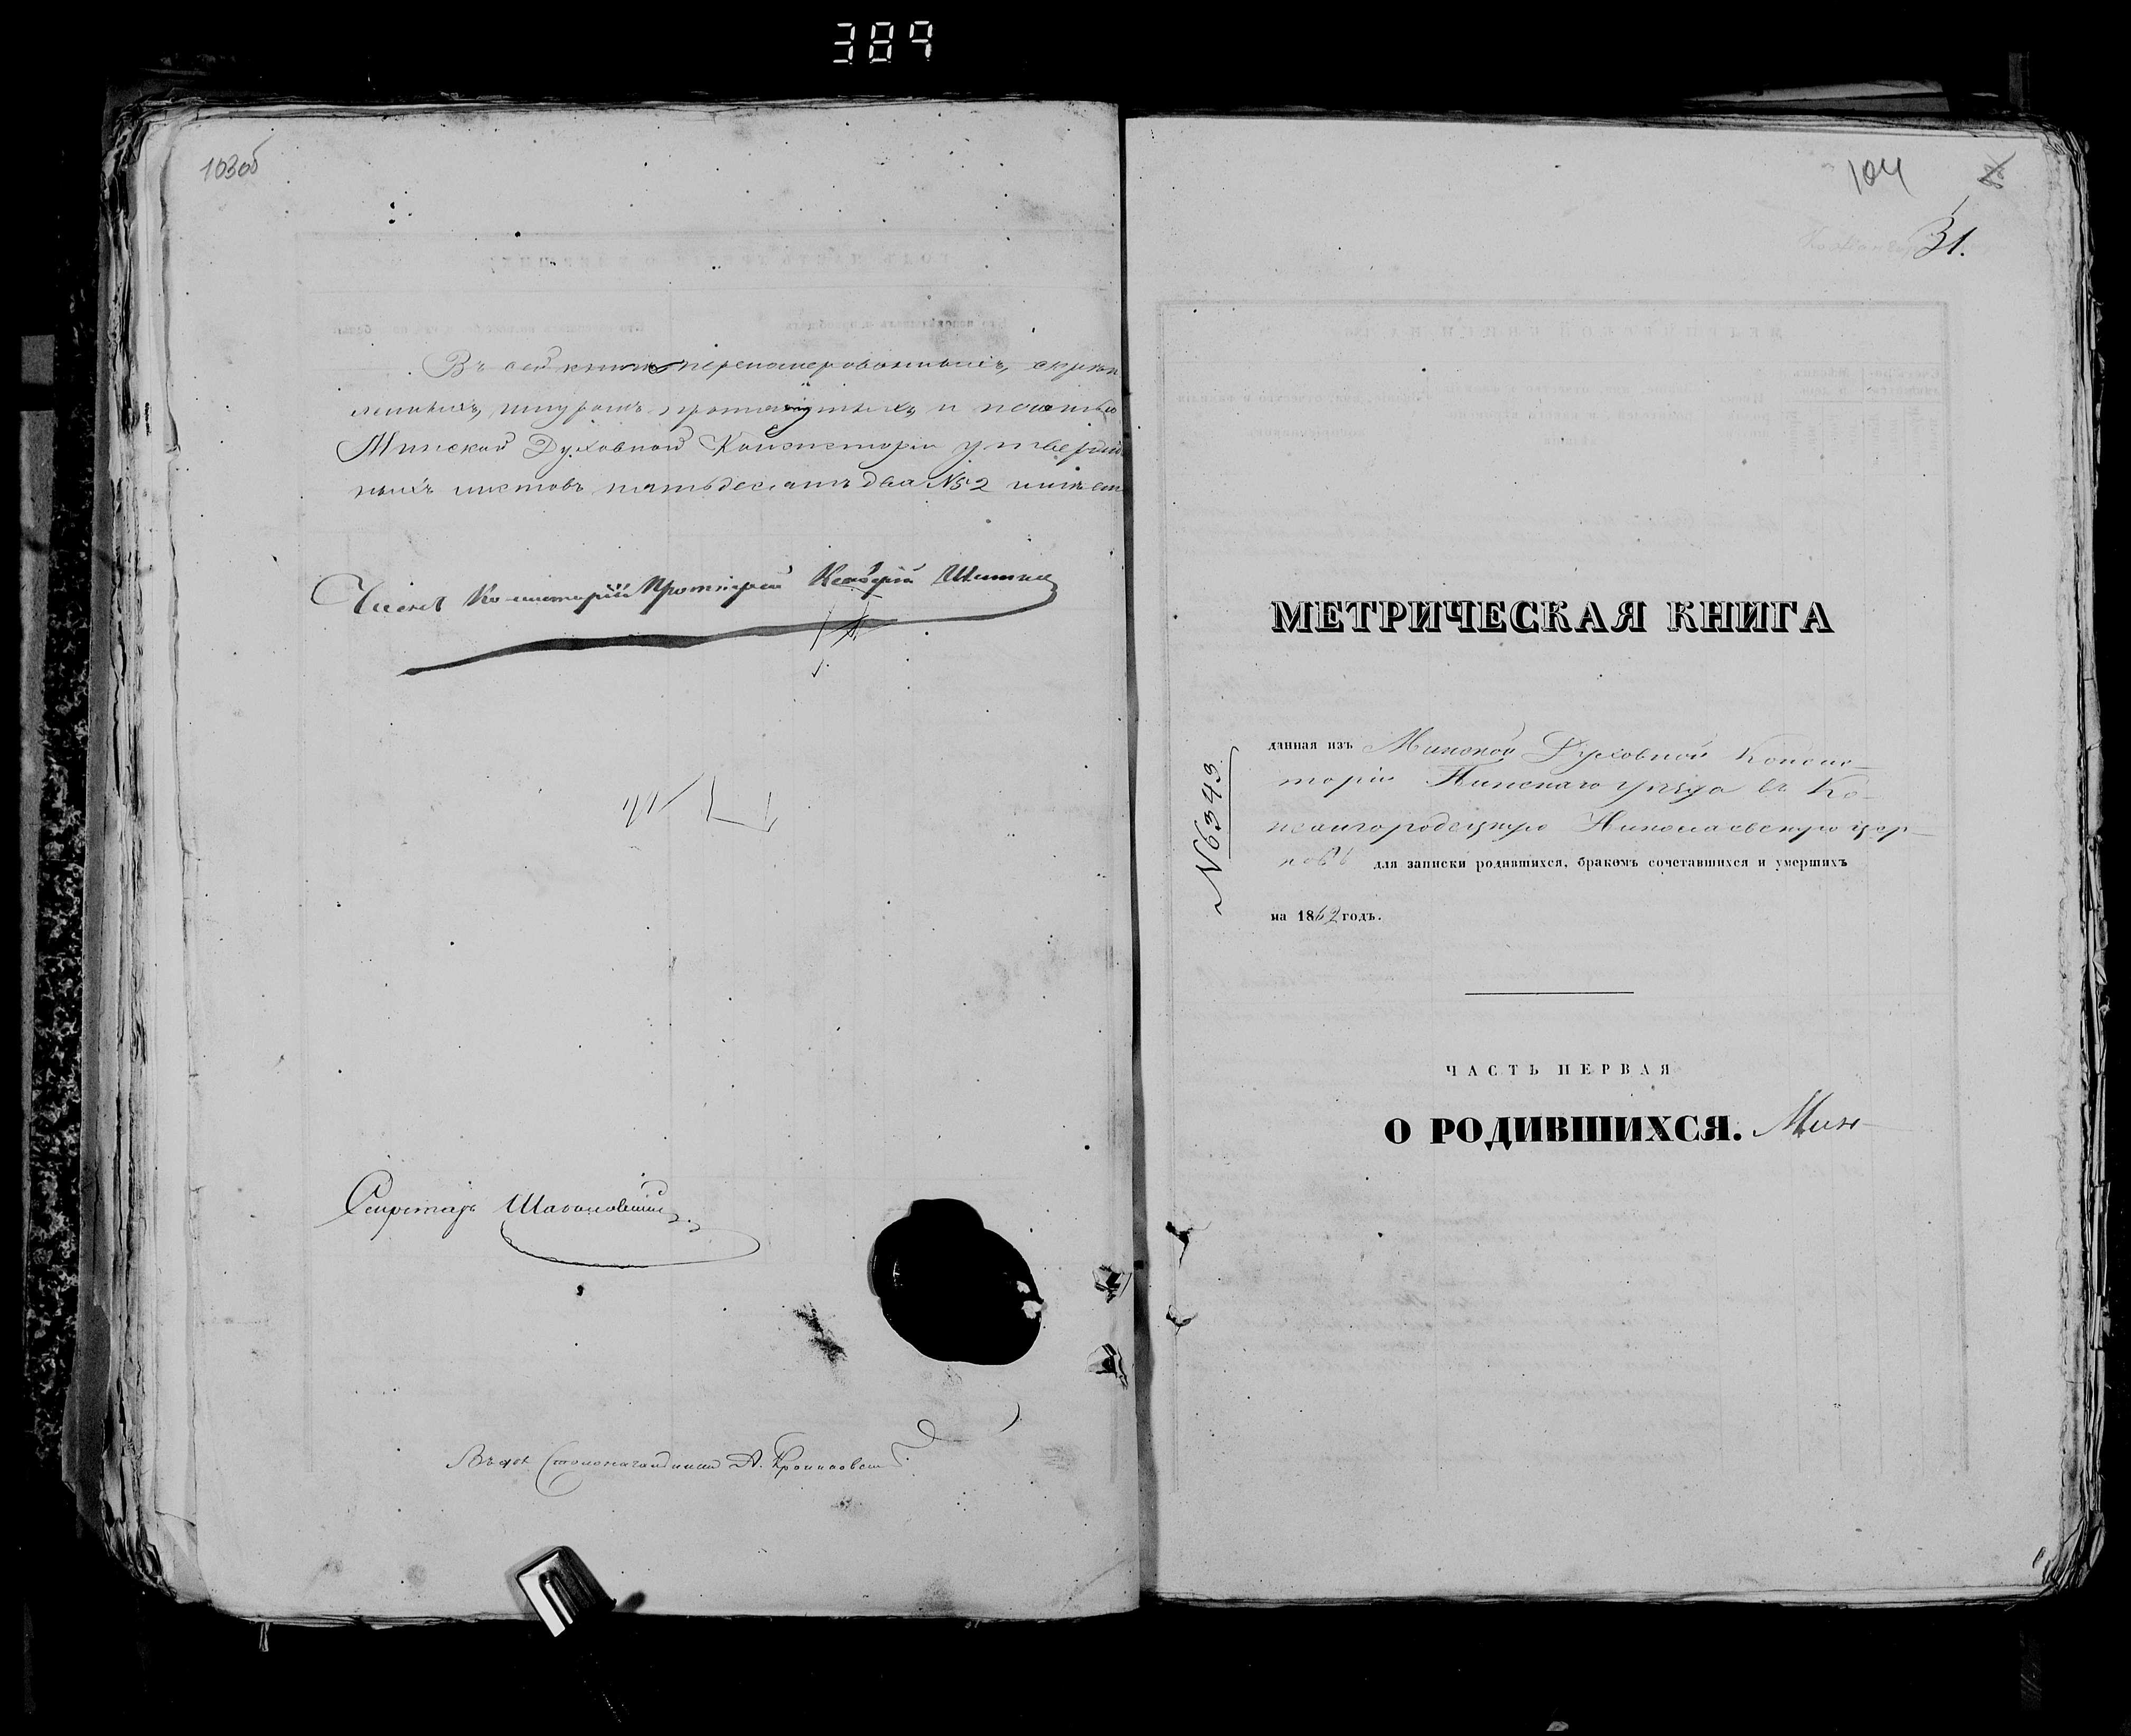 389
103об
Въ сей книгѣ перенумерованныхъ, скрѣп
ленныхъ, шнуромъ протянутыхъ и печатью
Минской Духовной Консисторіи утвержден
ныхъ листовъ пятьдесятъ два №52 имѣет
Членъ Консисторіи Протоіерей
Секретарь
Столоначальника А.
104
31.
МЕТРИЧЕСКАЯ КНИГА
№6343
данная изъ Минской Духовной Конси-
сторіи Пинскаго уѣзда въ Ко-
жангородецкую Николаевскую цер-
ковь для записки родившихся, бракомъ сочетавшихся и умершихъ
на 1862 годъ.
ЧАСТЬ ПЕРВАЯ
О РОДИВШИХСЯ. Мин-